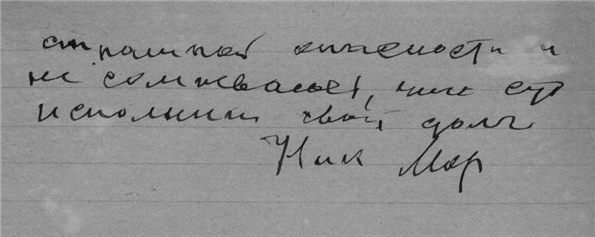 страшной опасности и
не сомневаюсь, что суд
исполнит свой долг
Ник Мар